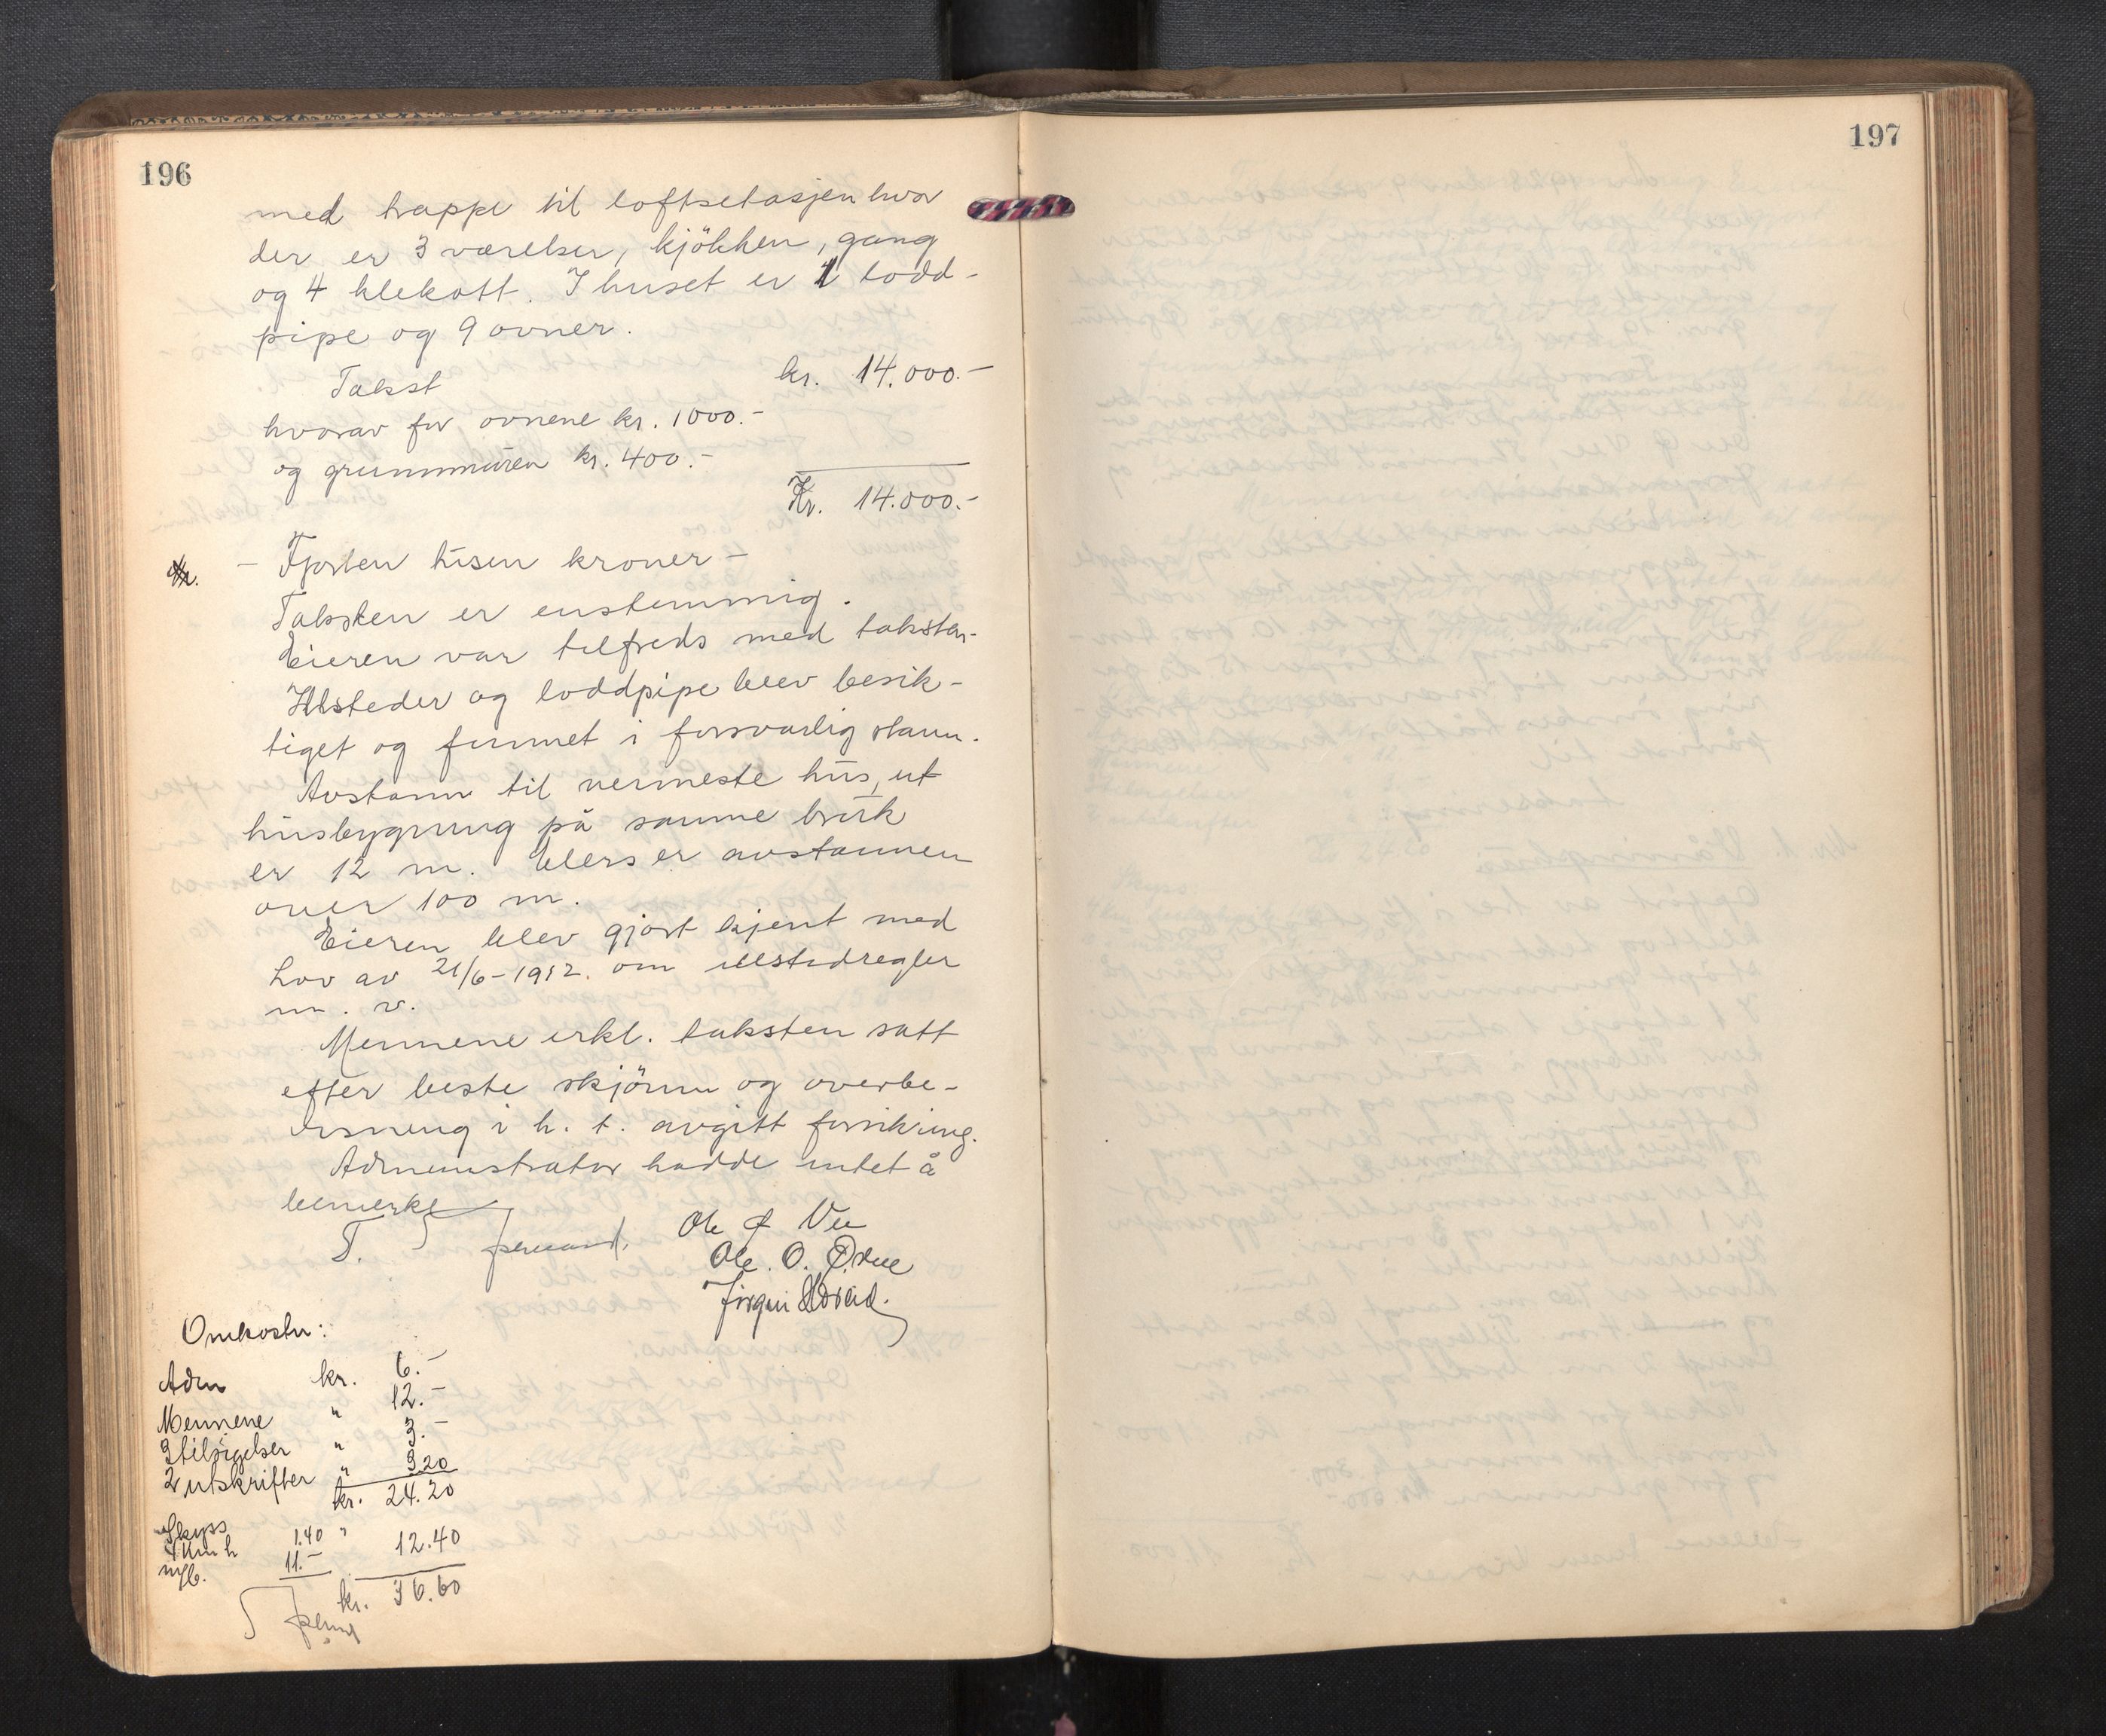 196
med trappe til loftsetasjen hvor
der er 3 værelser, kjökken, gang
og 4 klekott. I huset er 1 lodd-
pipe og 9 ovner.
Takst kr. 14.000.-
hvorav for ovnene kr. 1000.-
og grunnmuren kr. 400.-
Kr. 14.000.-
- Fjorten tusen kroner -
Taksten er enstemmig.
Eieren var tilfreds med taksten.
Ilsteder og loddpipe blev besik-
tiget og funnet i forsvarlig stann.
Avstann til nermeste hus, ut
husbygning på samme bruk
er 12 m. Ellers er avstannen
over 100 m.
Eieren blev gjort kjent med
Lov av 21/6-1912. om illstedregler
m. v.
Mennene erkl. taksten satt
efter beste skjönn og overbe-
visning i h. t. avgitt forsikring.
Administrator hadde intet å
bemerke
Ole O. Vee
Ole. O. Øvree
Jörgen
Omkostn:
Adm kr. 6.-
Mennene " 12.-
3 tilsigelser " 3.-
2 utskrifter " 3.20
kr. 24.20
Skyss
4 km h 1.40 " 12.40
m/b. 11.-
kr. 36.60
197